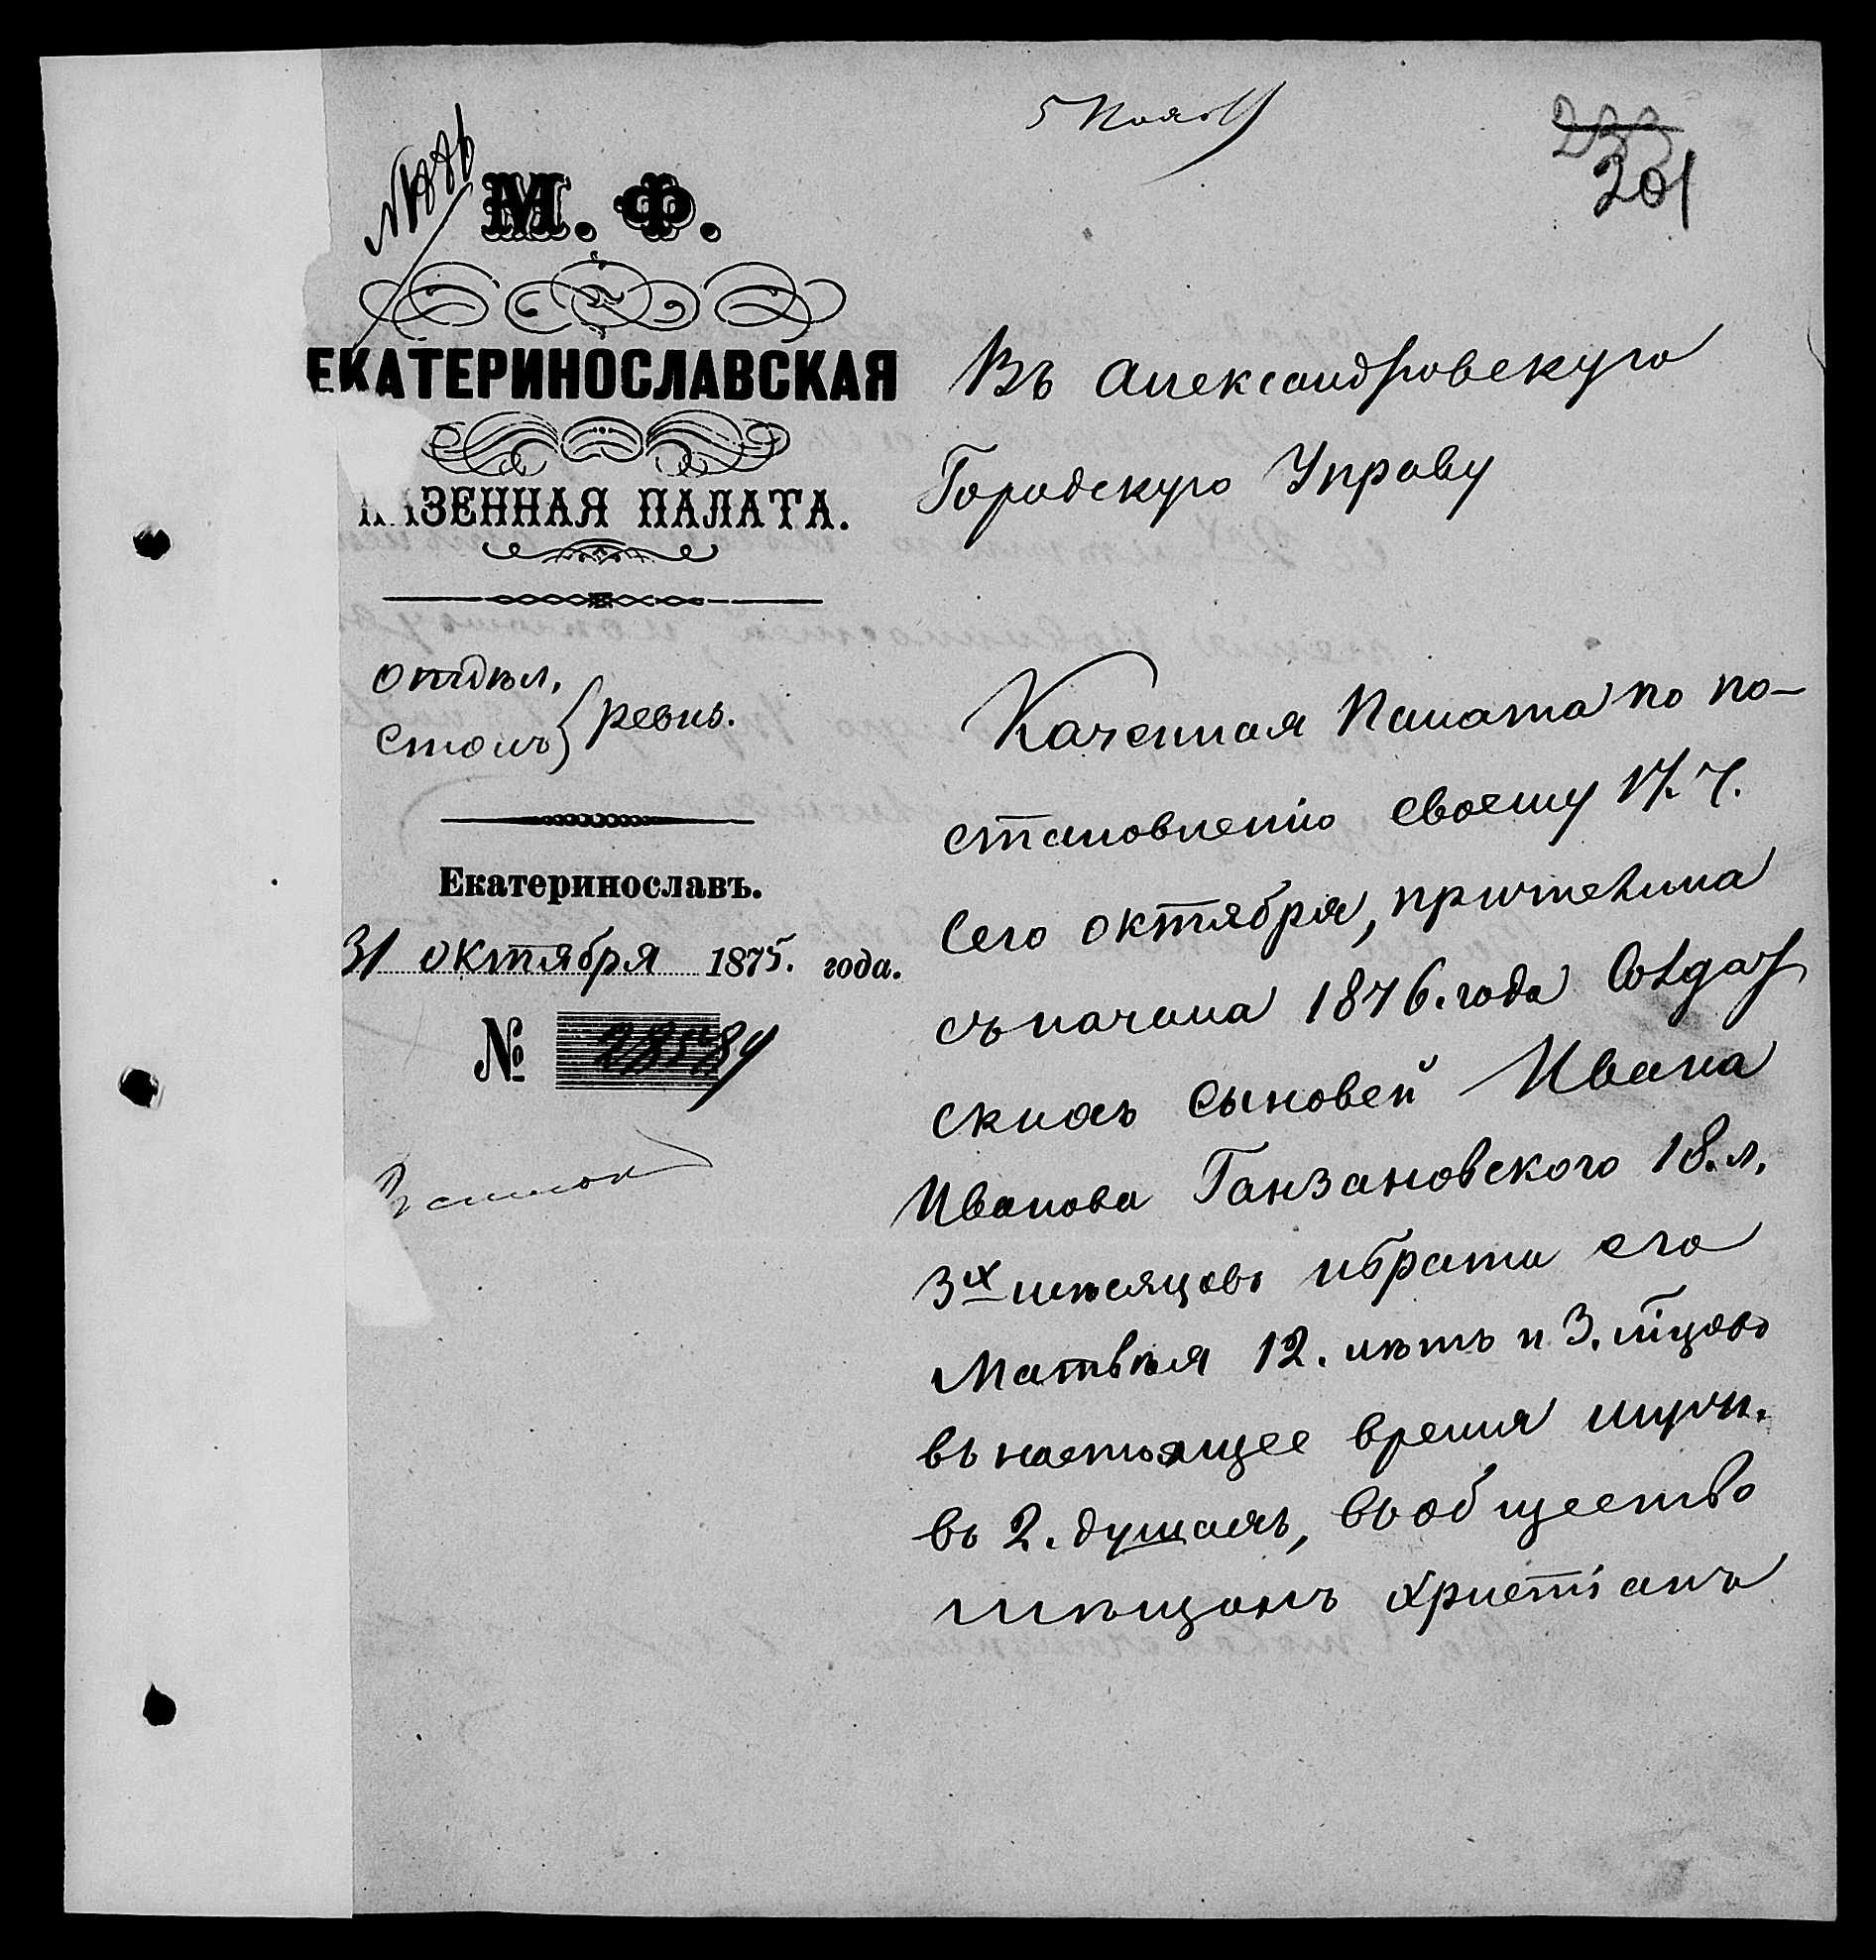 5 Нояб
233
201
М. Ф.
ЕКАТЕРИНОСЛАВСКАЯ
КАЗЕННАЯ ПАЛАТА.
Отдѣл.
Столъ } ревиз.
Екатеринославъ.
31 октября 1875. года.
№ 28584
Въ Александровскую
Городскую Управу
Казенная Палата по по-
становленію своему 17. ч.
сего октября, причислила
съ начала 1876. года Солдат
скихъ сыновей Ивана
Иванова Ганзановского 18. л.
3х мѣсяцовъ и брата его
Матвѣя 12. лѣтъ и 3. мѣцовъ
въ настоящее время
въ 2. душахъ, въ общество
мѣщанъ христіанъ